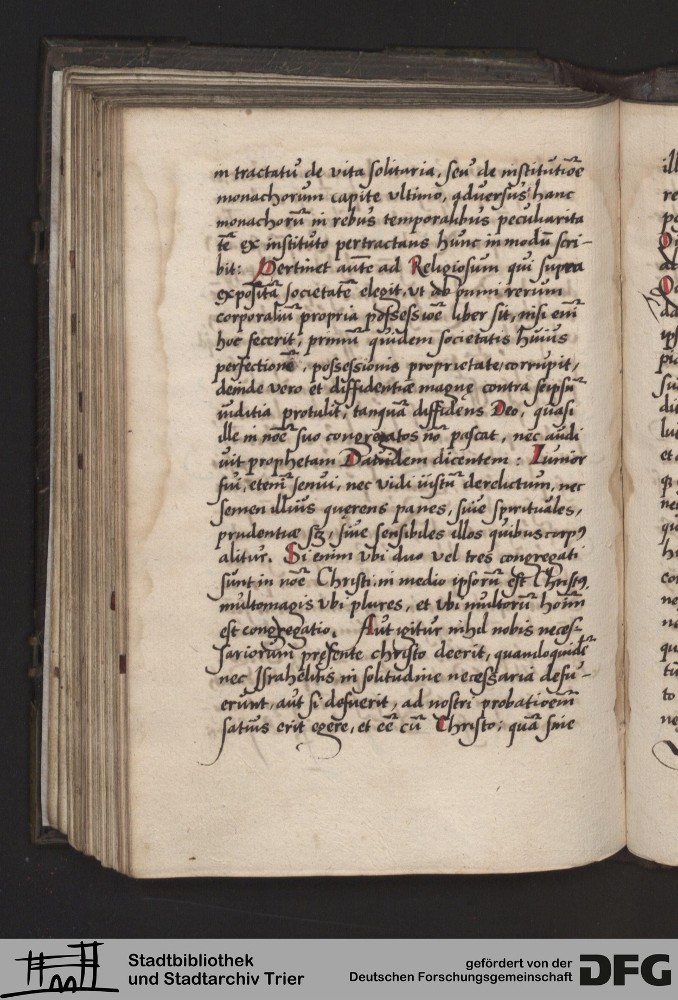 in tractatu᷈ de vita solitaria, seu de institutio᷈e
monachorum capite vltimo, aduersus hanc
monachoru᷈ in rebus temporalibus peculiarita
te᷈ ex instituto pertractans hunc in modu᷈ scri-
bit: Pertinet aut᷈e ad Religiosum qui supra
exposita᷈ societate᷈ elegit, vt ab omni rerum
corporaliu᷈ propria possessio᷈e liber sit, nisi eni᷈
hoc fecerit, primu᷈ quidem societatis huius
perfectione᷈, possessionis proprietate corrupit,
deinde vero et diffidentiæ magnę contra seipsu᷈
iuditia protulit, tanqua᷈ diffidens Deo, quasi
ille in no᷈e suo congregatos no᷈ pascat, nec audi
uit prophetam Dauidem dicentem: Iunior
fui, eteni᷈ senui, nec vidi iustu᷈ derelictum, nec
semen illius querens panes, siue spirituales,
prudentiæ sꝫ, siue sensibiles illos quibus corpꝰ
alitur. Si enim vbi duo vel tres congregati
sunt in no᷈e Christi in medio ipsoru᷈ est Christꝰ,
multomagis vbi plures, et vbi multoru᷈ homi᷈
est congregatio. Aut igitur nihil nobis neces-
sariorum pręsente christo deerit, quandoquide᷈
nec Israhelitis in solitudine necessaria defu-
erunt, aut si defuerit, ad nostri probatioem᷈
satius erit egere, et ee᷈ cu᷈ Christo; qua᷈ sine
Stadtbibliothek
und Stadtarchiv Trier
gefördert von der
Deutschen Forschungsgemeinschaft
DFG